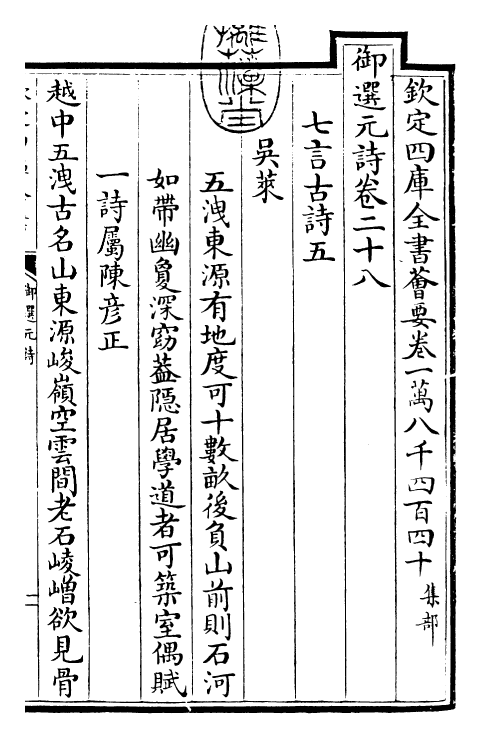 欽定四庫全書薈要卷一萬八千四百四十 集部
御選元詩卷二十八
七言古詩五
吳萊
五洩東源有地度可十數畝後負山前則石河
如帶幽敻深窈葢隱居學道者可築室偶賦
一詩屬陳彦正
越中五洩古名山東源峻嶺空雲間老石崚嶒欲見骨
御選元詩
一